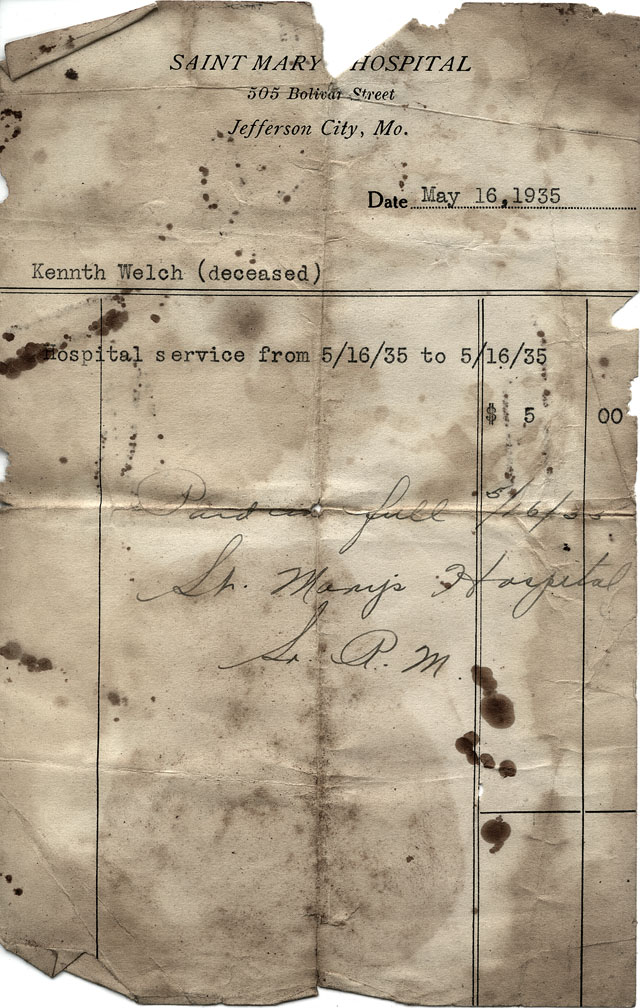 SAINT MARY HOSPITAL
505 Bolivar Street
Jefferson City, Mo.
Date May 16,1935
Kennth Welch (deceased)
Hospital service from 5/16/35 to 5/16/35
$ 5 00
Paid in full 5/16/35
St. Marys Hospital
Sr. R. M.